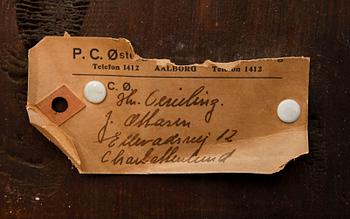 P. C. Øste
Telefon 1412 AALBORG Telefon 1412
C. Ø.
Hr.
J. Ottosen
Ellevadsvej 12
Charlottenlund